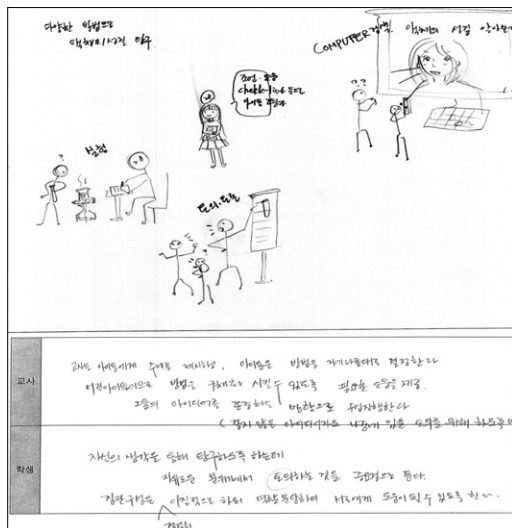 다양한 방법으로
액체의 성질 탐구
COMPUTER검색. 액체의 성질 알아보기
조언. 추후
check-list 등으로
실험
토의.토론
교사
교사는 아이들에게 주제를 제시하고, 아이들은 방법을 자기 나름대로 결정한다
어린아이들이므로 방법을 구체화 시킬 수 있도록 필요한 도움을 제공.
그들의 아이디어를 존중하는 방향으로 수업진행한다
(옳지 않은 아이디어라도 나중에 있을 토의를 위해 하도록
학생
자신의 생각을 통해 탐구하도록 하는데
자유로운 분위기에서 토의하는 것을 중점적으로 둔다.
집단구성은 이질적으로 하되 역할분담하여 서로에게 도움이 될 수 있도록 한다.